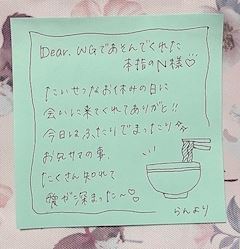 Dear. WGであそんでくれた
本指のN様♡
たいせつなお休みの日に
会いに来てくれてありがと!!
今日はふたりでまったり
お兄サマの事、
たくさん知れて
愛が深まった〜♡
らんより